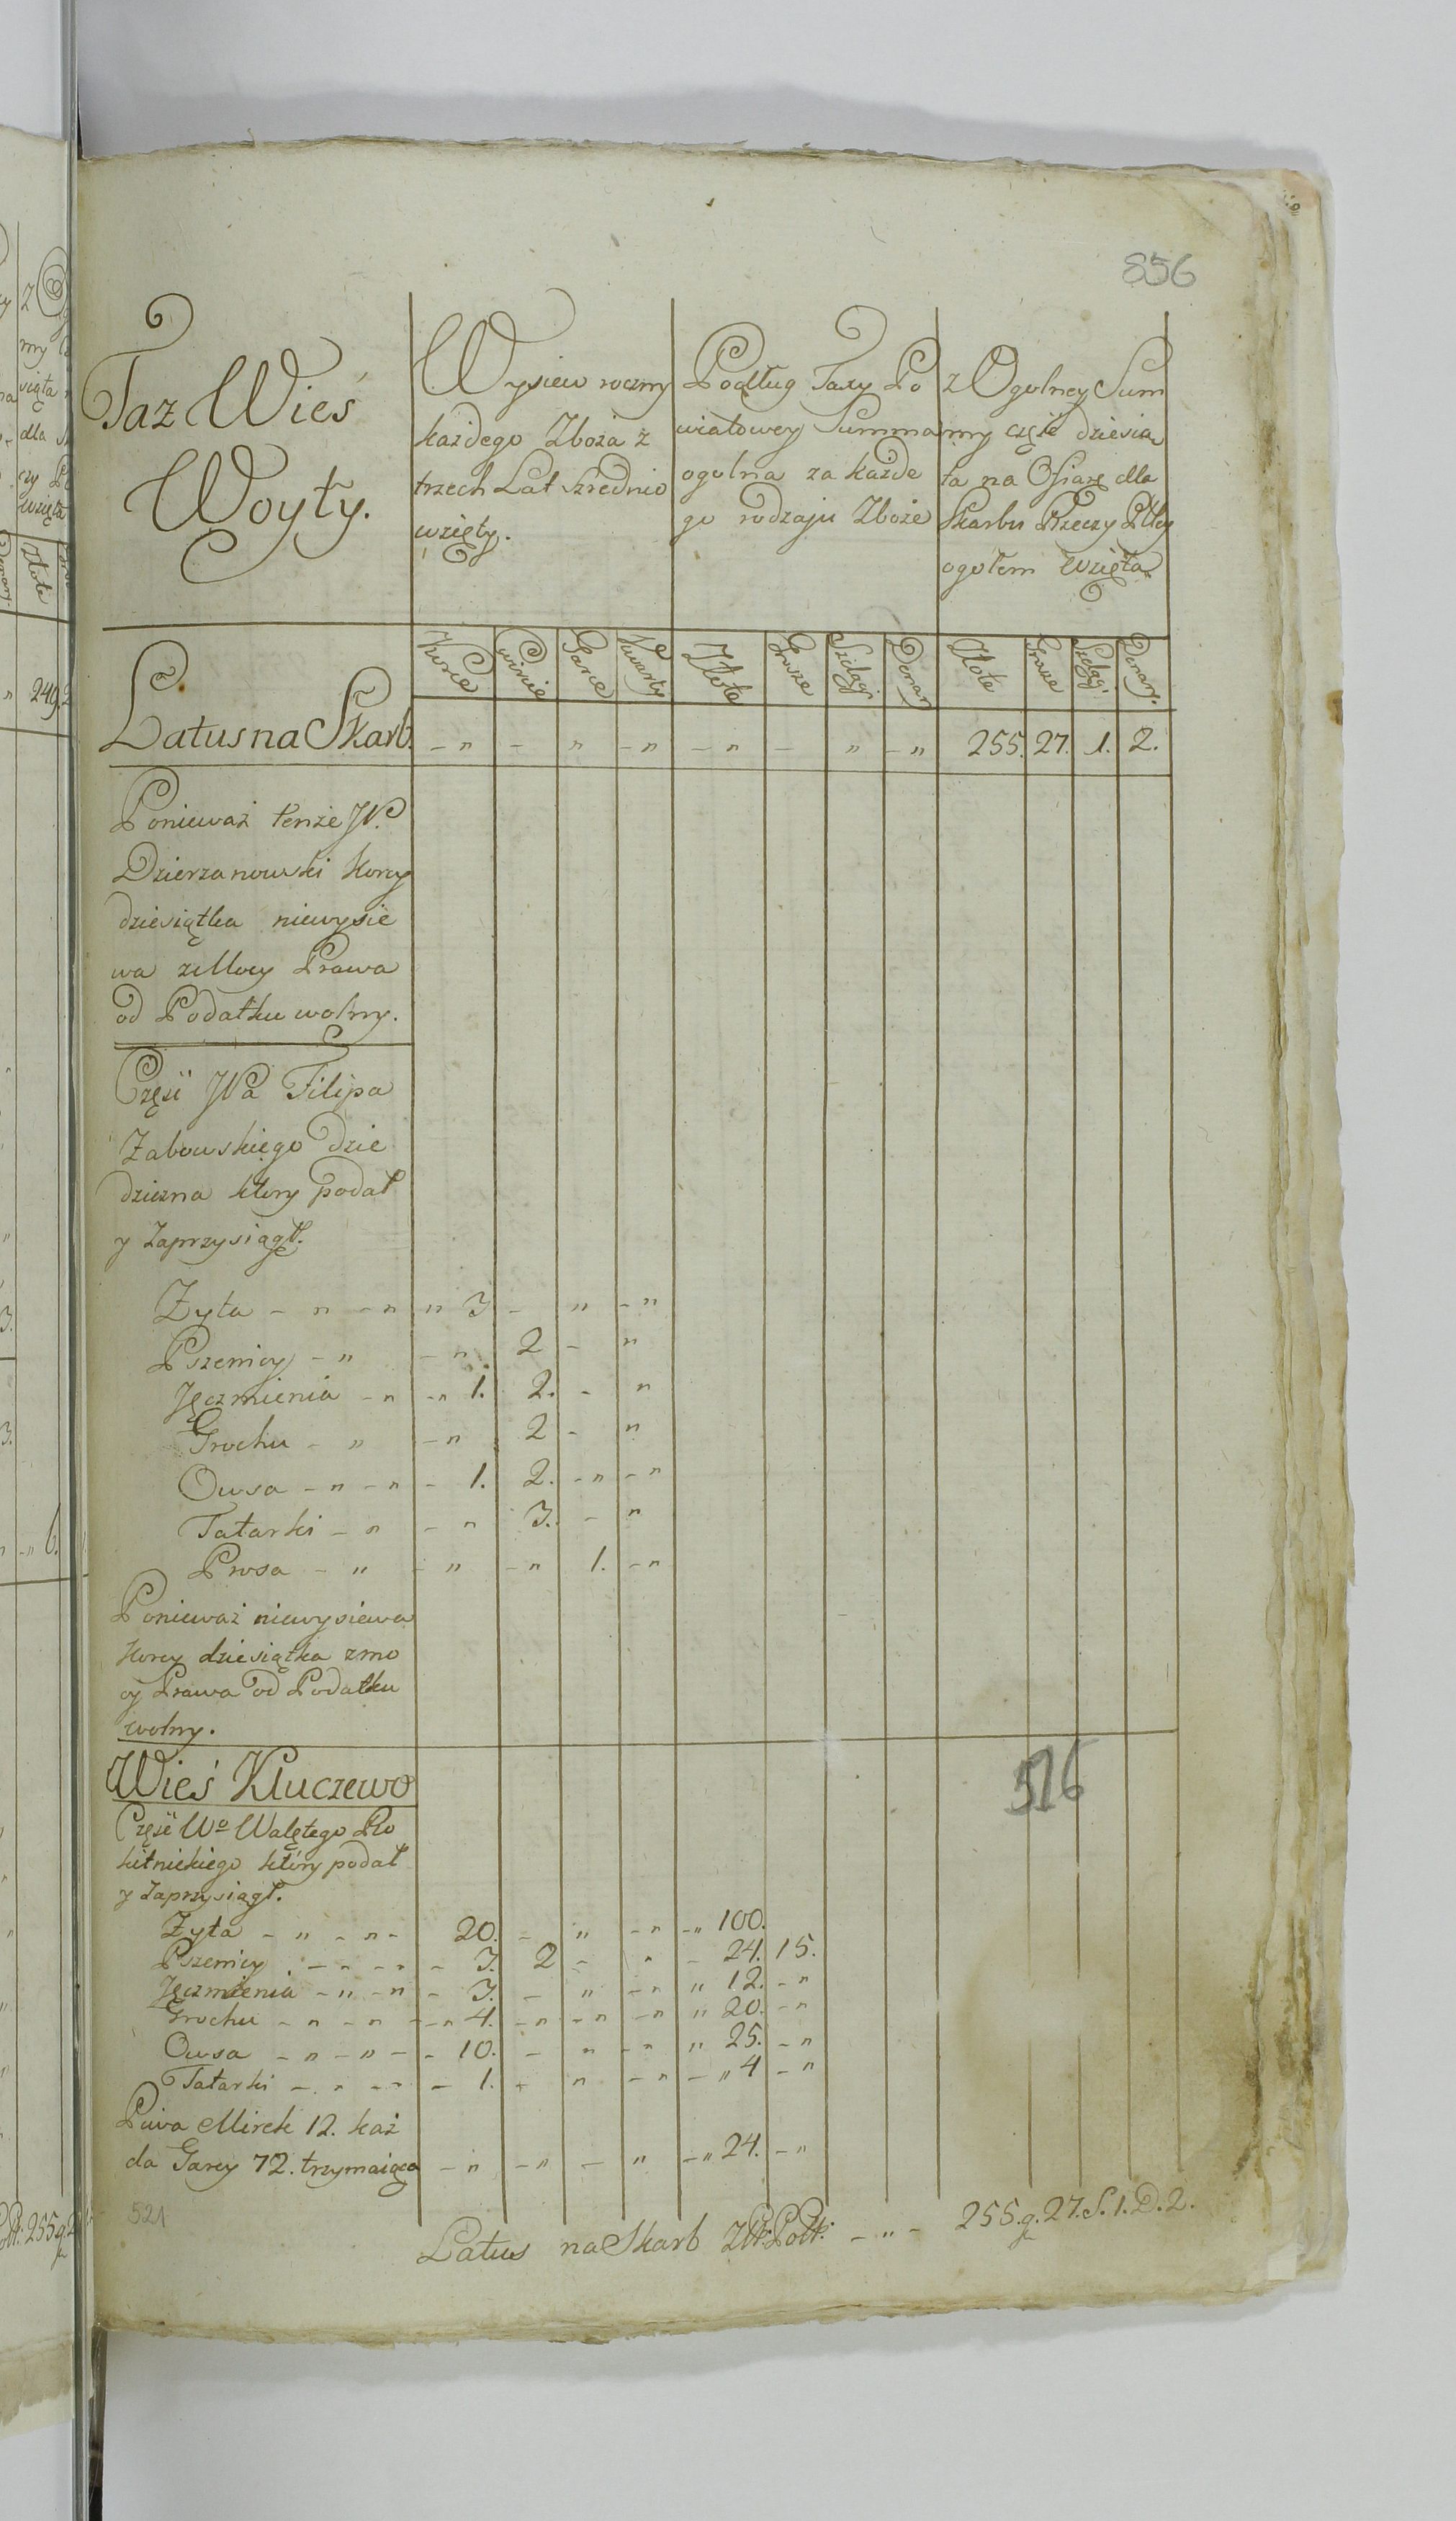 856
Taż Wieś
Woyty.
Wysiew roczny
każdego Zboża z
trzech Lat szrednio
wzięty.
Podług Taxy Po
wiatowey Summa
ogolna za każde
go rodzaju Zboże
z Ogolney Sum
my część dziesią
ta na Ofiarę dla
Skarbu Rzeczy Pltey
ogołem wzięta
Korce Cwiercie Garce Kwarty Złote Grosze Szelągi Denary Złote Grosze Szelągi Denary.
Latus na Skarb. - " - " - " - " - " - " 255. 27. 1. 2.
Ponieważ tenże JW.
Dzierzanowski Korcy
dziesiątka niewysie
wa z Mocy Prawa
od Podatku wolny.
Część JPa Filipa
Zabowskiego Dzie
dzizna ktory podał
y zaprzysiągł.
Zyta - " - " " 3 - " - "
Pszenicy - " - " 2 - "
Jęczmienia - " - " 1. 2. - "
Grochu - " - " 2 - "
Owsa - " - " - 1. 2. - " - "
Tatarki - " - " 3. - "
Prosa - " - " - " 1. - "
Ponieważ niewysiewa
Korcy dziesiątka z mo
cy Prawa od Podatku
wolny.
Wieś Kluczewo
Część Wo Walętego Ro
kitnickiego który podał
y zaprzysiągł.
516
Zyta - " - " - 20. - " - " - " 100.
Pszenicy - " - " - 3. 2 - " - 24. 15.
Jęczmienia - " - " - 3. - " - " " 12. - "
Grochu - " - " - " 4. - " - " - " " 20. - "
Owsa - " - " - - 10. - " - " " 25. - "
Tatarki - " - " - 1. - " - " - " 4 - "
Piwa Mirek 12. każ
da Garcy 72. trzymaiąca - " - " - " - " 24. - "
521
Latus na Skarb Złt: Polk: - " - 255. g. 27. S. 1. D. 2.